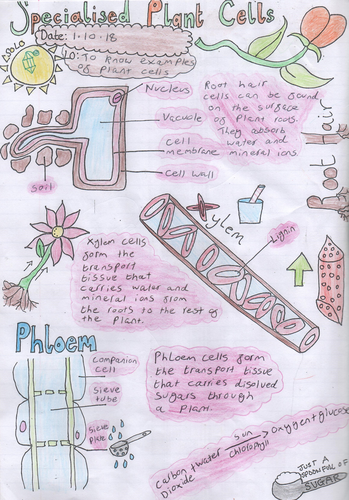 Specialised Plant Cells
Date: 1-10-18
LO: To know examples
of Plant cells
Nucleus
Vacuole
Cell
membrane
Cell wall
Soil
Root hair
cells can be found
on the surface
of Plant roots.
They absorb
water and
mineral ions.
Root Hair
Xylem
Lignin
Xylem cells
form the
transport
tissue that
carries water and
mineral ions from
the roots to the rest of
the Plant.
Phloem
Companion
cell
Sieve
tube
Sieve
Plate
Phloem cells form
the transport tissue
that carries disolved
sugars through
a plant.
carbon + water
Dioxide
sun
chlorophyll
Oxygen + glucose
JUST A
SPOONFUL OF
SUGAR